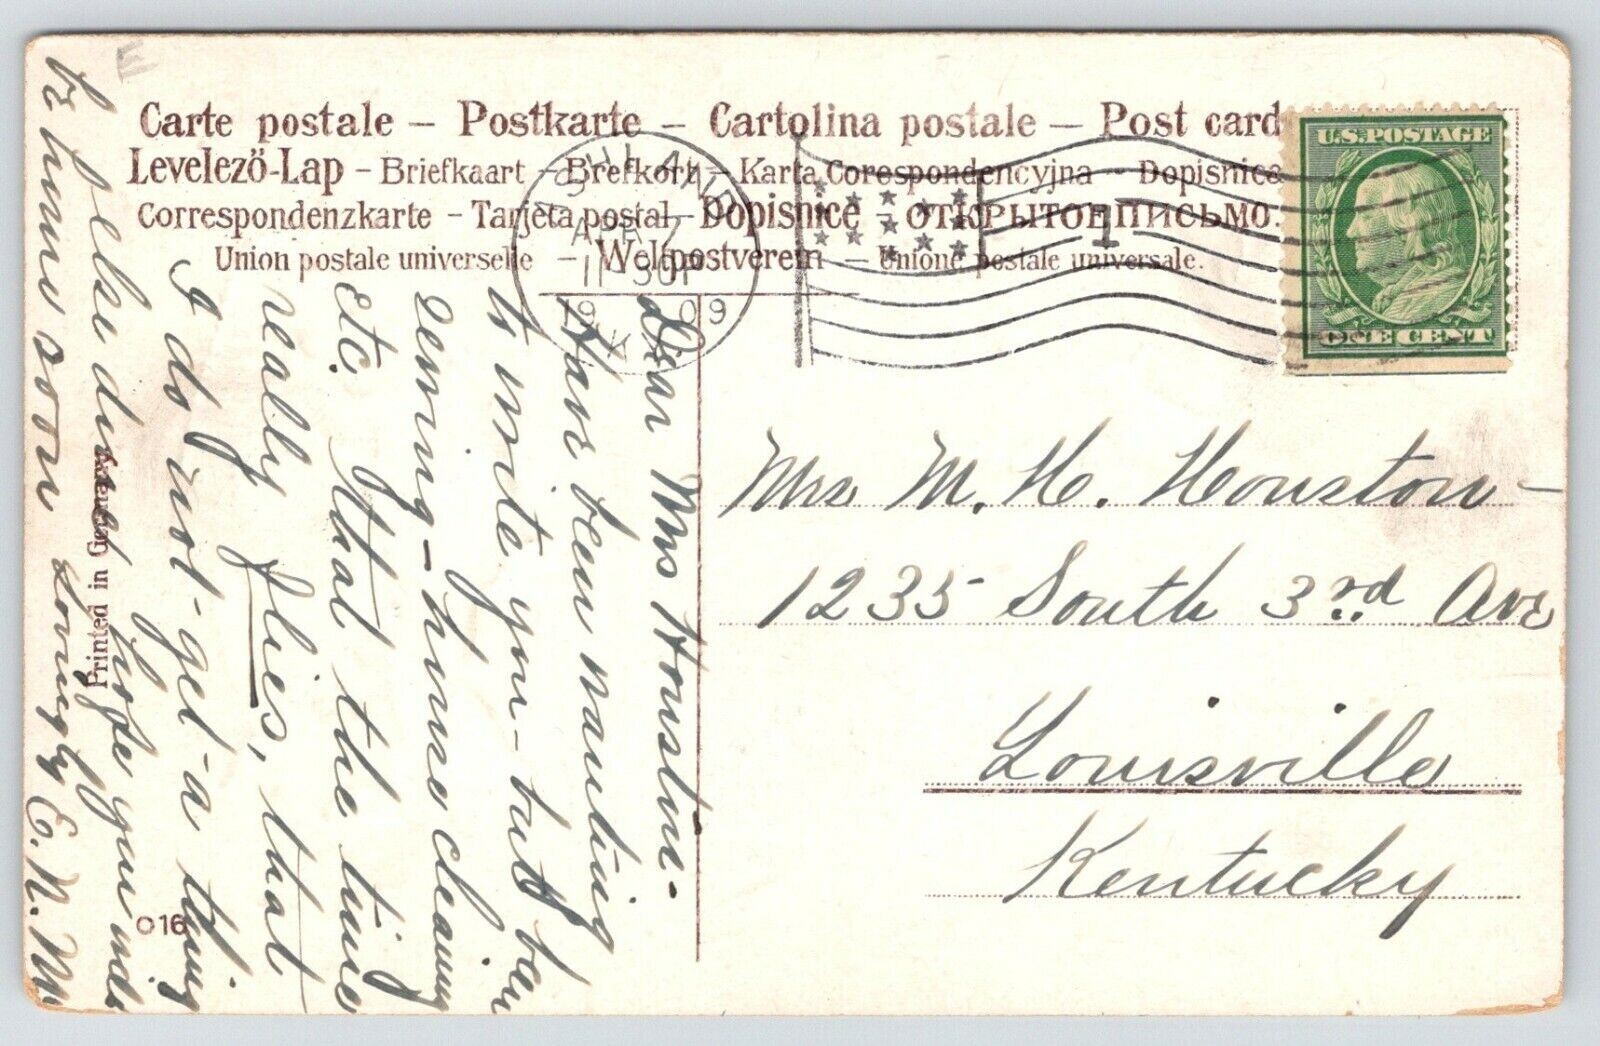 Carte postale – Postkarte – Cartolina postale – Post card
Levelező-Lap – Briefkaart – Brefkort – Karta Corespondencyjna – Dopisnice
Correspondenzkarte – Tarjeta postal – Dopisnice – ОТКРЫТОЕ ПИСЬМО.
Union postale universelle – Weltpostverein – Unione postale universale.
ASHLAND
APR 7
11-30P
1909
KY
1
U.S. POSTAGE
ONE CENT
Mrs M. H. Houston –
1235 South 3rd Ave
Louisville
Kentucky
Dear Mrs Houston -
Have been wanting
to write you - but been
sewing - house cleaning
etc. that the time
really flies, that
I do not - get - a thing
else done hope you will
be home soon
Lovingly E. N. M
Printed in Germany
016
E